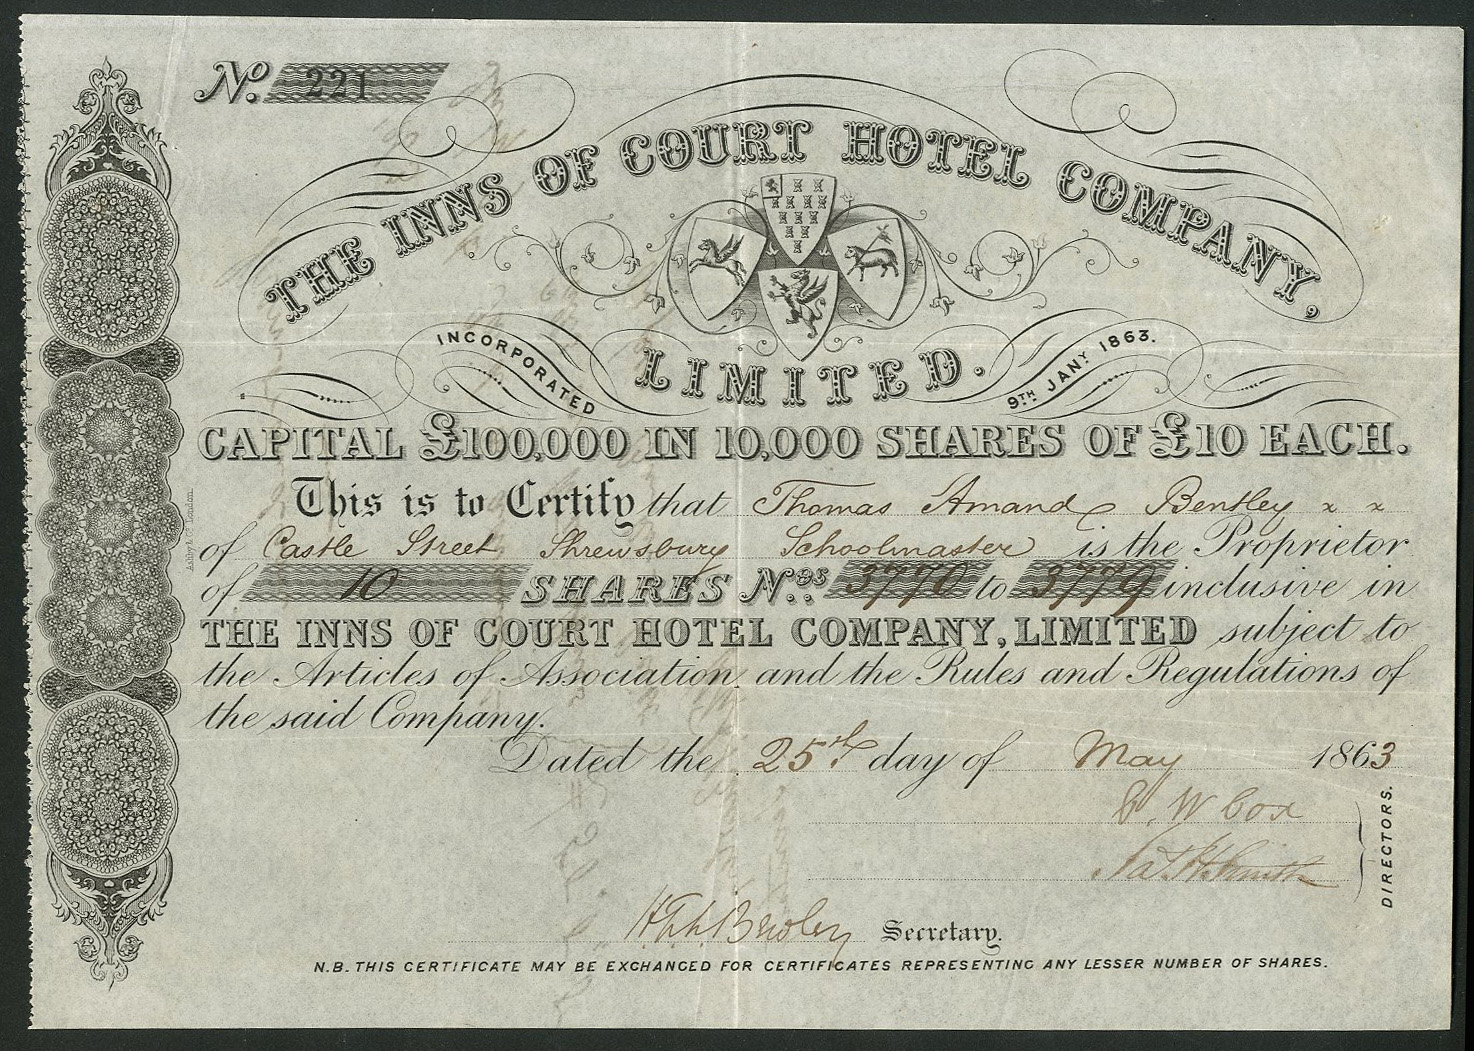 No. 221
THE INNS OF COURT HOTEL COMPANY,
LIMITED.
INCORPORATED 9TH JANY 1863.
CAPITAL £100,000 IN 10,000 SHARES OF £10 EACH.
This is to Certify that Thomas Amand Bentley x x
of Castle Street Shrewsbury Schoolmaster is the Proprietor
of 10 SHARES Nos. 3770 to 3779 inclusive in
THE INNS OF COURT HOTEL COMPANY, LIMITED subject to
the Articles of Association and the Rules and Regulations of
the said Company.
Dated the 25th day of May 1863
W Cox
Smith
DIRECTORS.
Secretary.
N.B. THIS CERTIFICATE MAY BE EXCHANGED FOR CERTIFICATES REPRESENTING ANY LESSER NUMBER OF SHARES.
Ashby & Co. London.